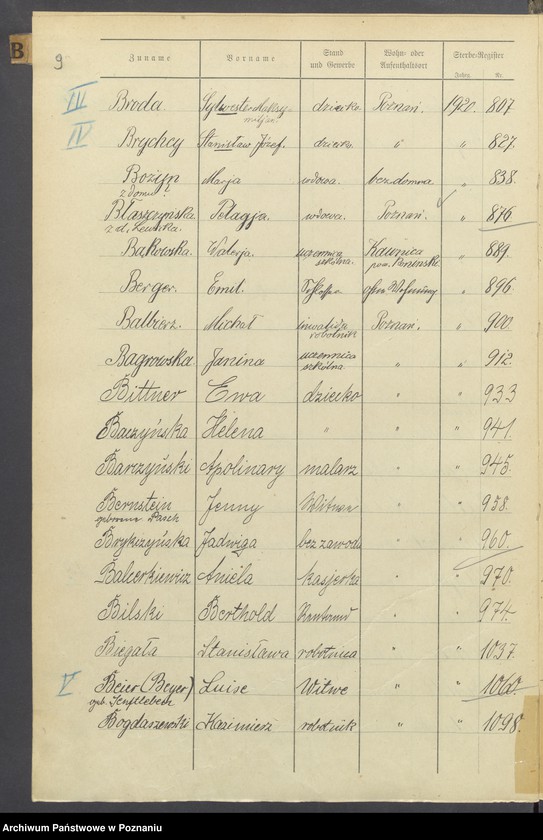 B
9
Zuname Vorname Stand und Gewerbe Wohn- oder Aufenthaltsort Sterbe-Register
Jahrg. Nr.
III Broda Sylwester Maksymiljan dziecko Poznań. 1920. 807
IV Brychcy Stanisław Józef. dziecko " " 827.
Bożyn Marja wdowa. bezdomna " 838.
z domu ?
Błaszczyńska Pelagja. wdowa. Poznań. " 876
Bąkowska. Walerja. uczennica szkolna. " 889
Berger. Emil. " 896
Balbierz. Michał inwalida robotnik Poznań. " 900.
Bagrowska Janina uczennica szkolna " " 912.
Bittner Ewa dziecko " " 933
Baczyńska Helena " " " 941.
Barczyński Apolinary malarz " " 945.
Bernstein Jenny Witwe " " 958.
geborene
Brykczyńska Jadwiga bez zawodu " " 960.
Balcerkiewicz Aniela kasjerka " " 970.
Bilski Berthold " " 974.
Biegała Stanisława robotnica " " 1037.
V Beier (Beyer) Luise Witwe " " 1060.
geb. Senftleben
Bogdaszewski Kazimierz robotnik " " 1098.
Archiwum Państwowe w Poznaniu